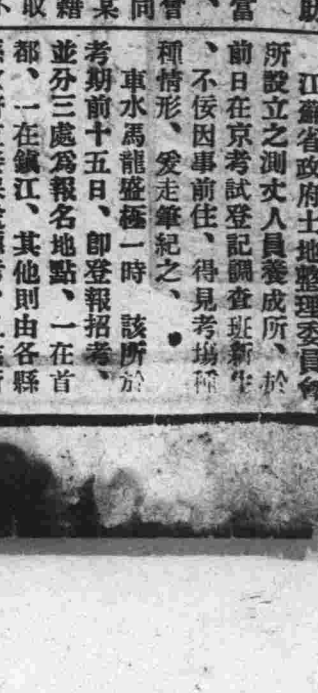 江蘇省政府土地整理委員會
所設立之測丈人員養成所、於
前日在京考試登記調查班新生
、不佞因事前往、得見考場種
種情形、爰走筆紀之、
車水馬龍盛極一時　該所於
考期前十五日、即登報招考、
並分三處為報名地點、一在首
都、一在鎮江、其他則由各縣